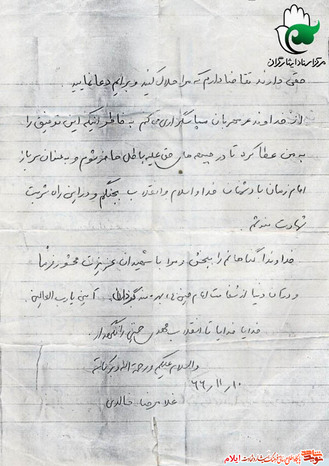 مرکز اسناد ایثارگران
حقی دارند تقاضا دارم که مرا حلال کنند و برایم دعا نمایید.
از خداوند مهربان سپاسگزاری می کنم به خاطر اینکه این توفیق را
به من عطا کرد تا در جبهه های حق علیه باطل حاضر شوم و به عنوان سرباز
امام زمان با دشمنان خدا و اسلام و انقلاب بجنگم و در این راه شربت
شهادت بنوشم.
خداوندا گناهانم را ببخش و مرا با شهیدان عزیزت محشور فرما
و در آن دنیا از شفاعت امام حسین بهره مند گردان. آمین یا رب العالمین
خدایا خدایا تا انقلاب مهدی خمینی را نگهدار
والسلام علیکم و رحمة الله و برکاته
۶۶/۱۱/۱۰
غلامرضا خالدی
ایلام